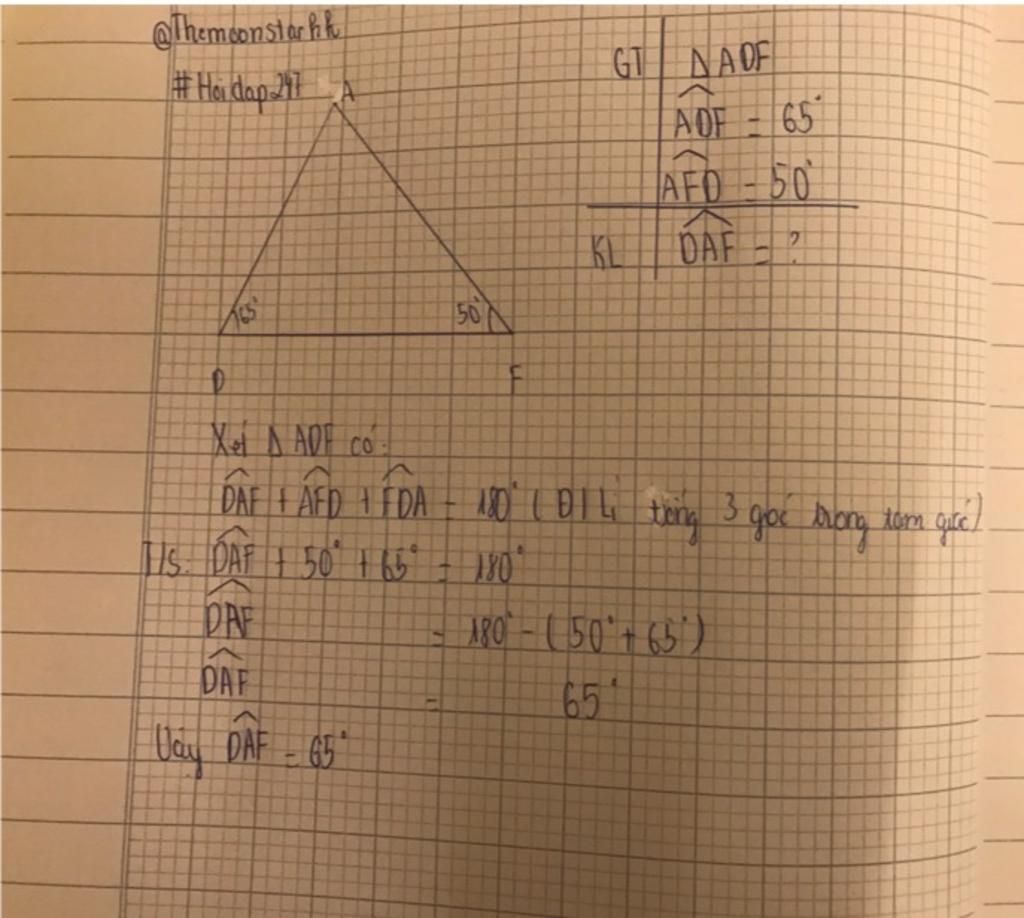 @Themoonstarhh
#Hoidap247
A
65°
50°
D
F
GT
Δ ADF
ADF = 65°
AFD = 50°
KL
DAF = ?
Xét Δ ADF có:
DAF + AFD + FDA = 180° ( Đ/L tổng 3 góc trong tam giác)
T/s: DAF + 50° + 65° = 180°
DAF = 180° - ( 50° + 65° )
DAF = 65°
Vậy DAF = 65°